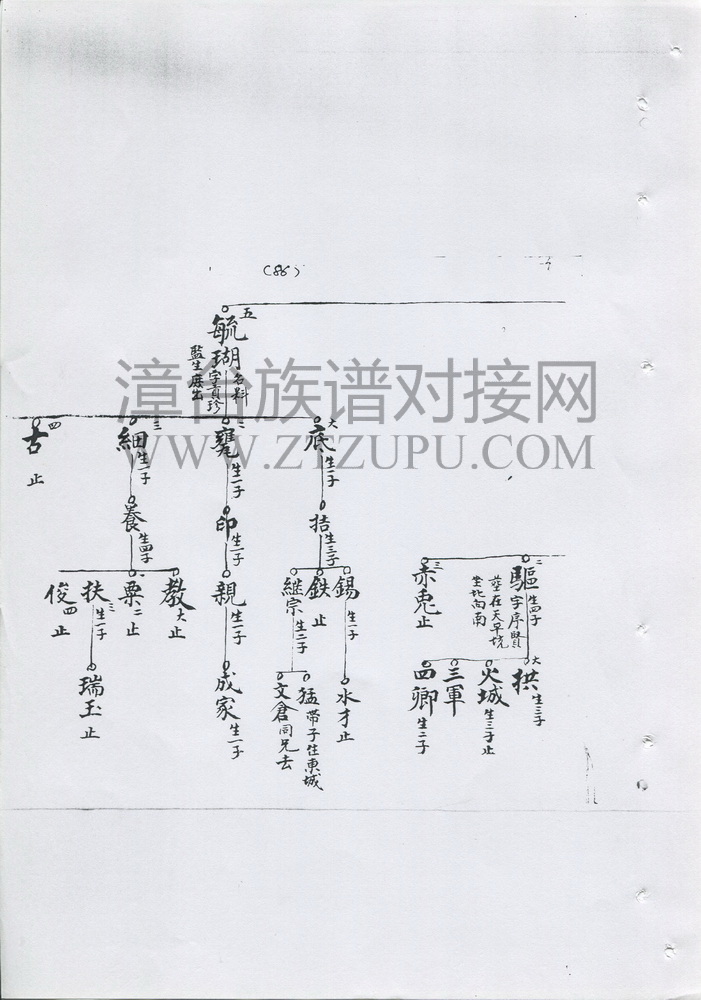 (86)
五
毓瑚
名料
字貢珍
監生庶出
二
驅
生四子
字序賢
葬在天早坑
坐北向南
三
赤兎
止
大
拱
生三子
火城
生三子止
三軍
四卿
生二子
大
底
生一子
拮
生三子
錫
生一子
水才
止
鉄
止
継宗
生二子
猛
帶子住東城
文倉
同兄去
二
甕
生一子
印
生一子
親
生一子
成家
生一子
三
細
生一子
養
生四子
教
大
止
粟
二
止
三
扶
生一子
瑞玉
止
俊
四
止
四
古
止
漳台族谱对接网
WWW.ZTZUPU.COM